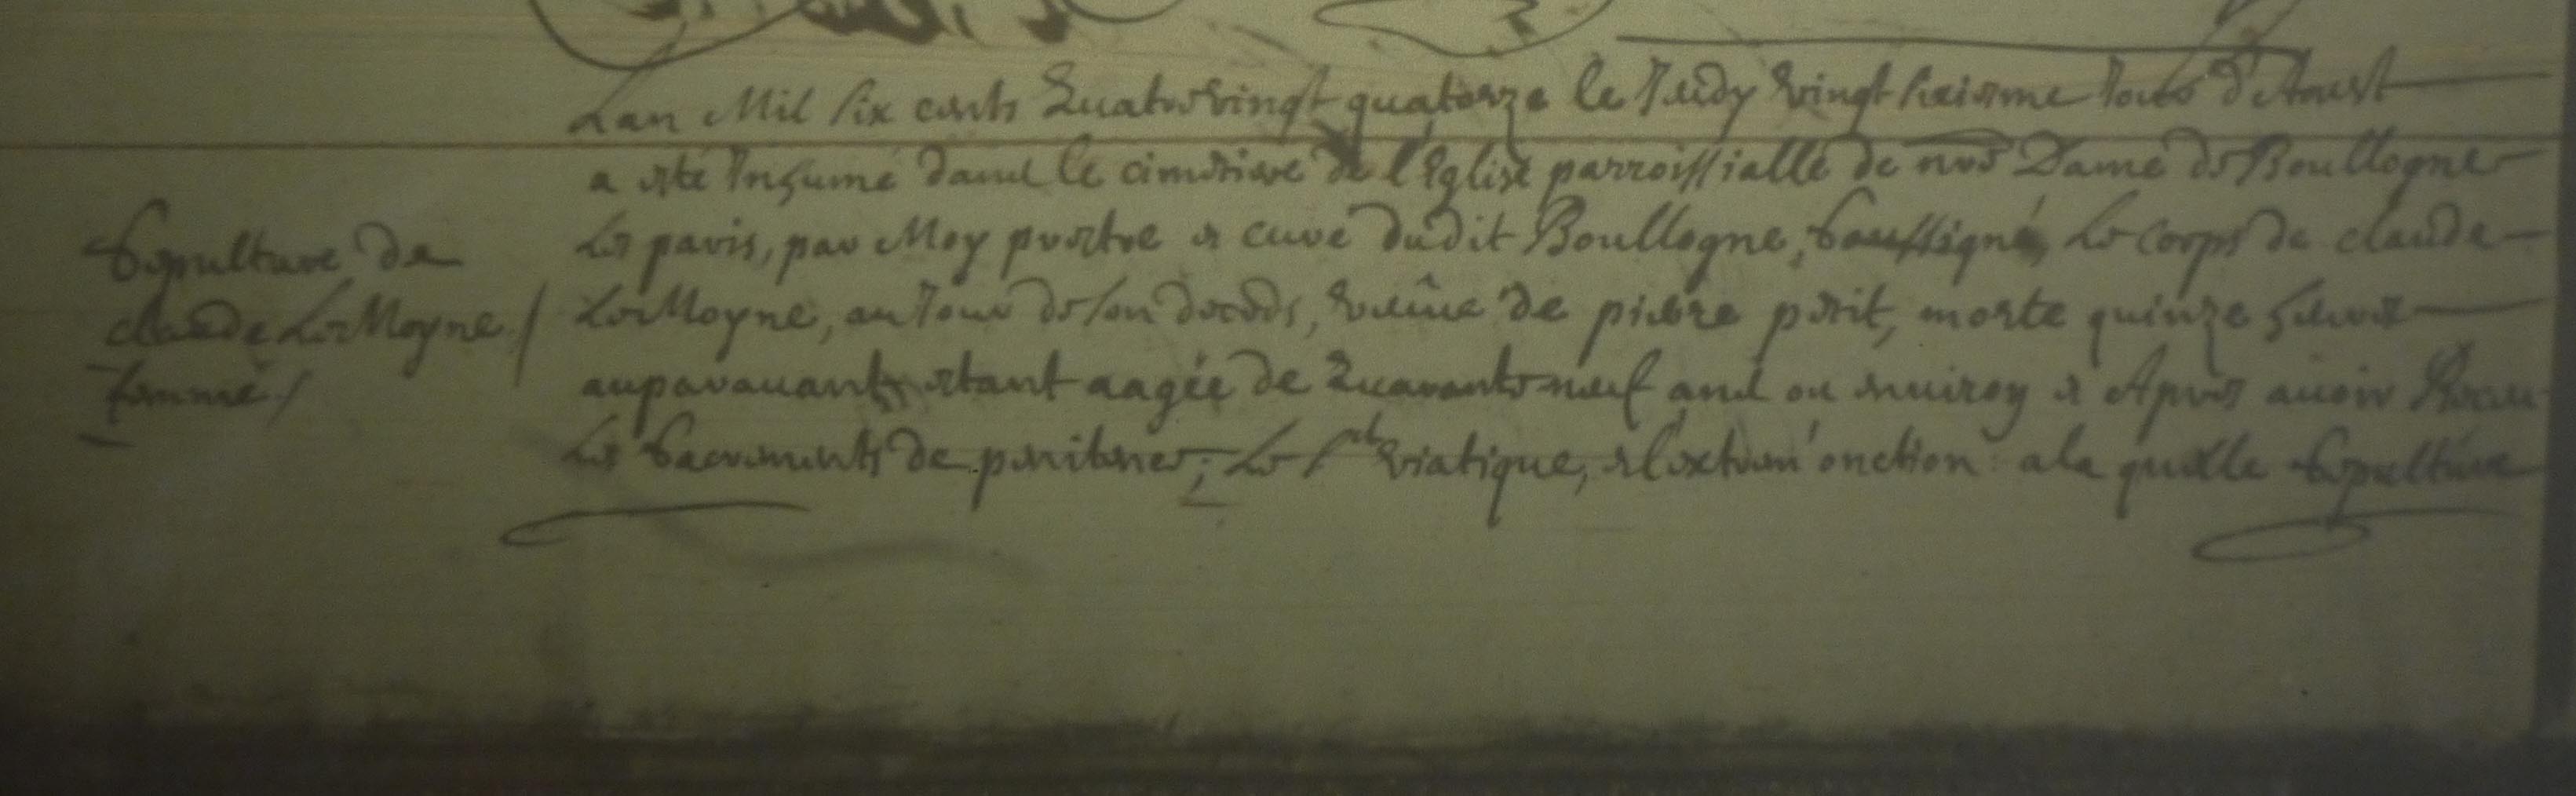 Sepulture de
claude Le Moyne /
femme /
Lan Mil six cents Quatre vingt quatorze le Jeudy vingt sixieme Jour d'Aoust
a esté Inhumé dans le cimetiere de l'Eglise parroissialle de nre Dame de Boullogne
Les paris, par Moy prestre et curé dudit Boullogne, soussigné, Le corps de claude
Le Moyne, au Jour de son deceds, veuue de pierre petit, morte quinze heures
auparauant, estant aagée de Quarante neuf ans ou enuiron et Apres auoir Receu
Les Sacrements de penitence, Le st viatique, et lextrem'onction a la quelle Sepulture